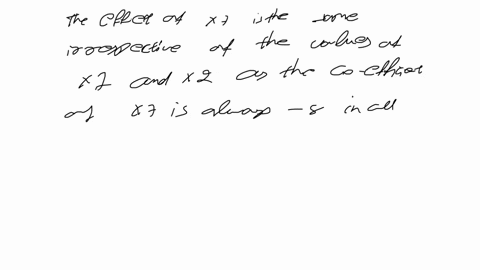 The effect of x7 is the same
irrespective of the values of
x1 and x2 as the co-efficient
of x7 is always -8 in all